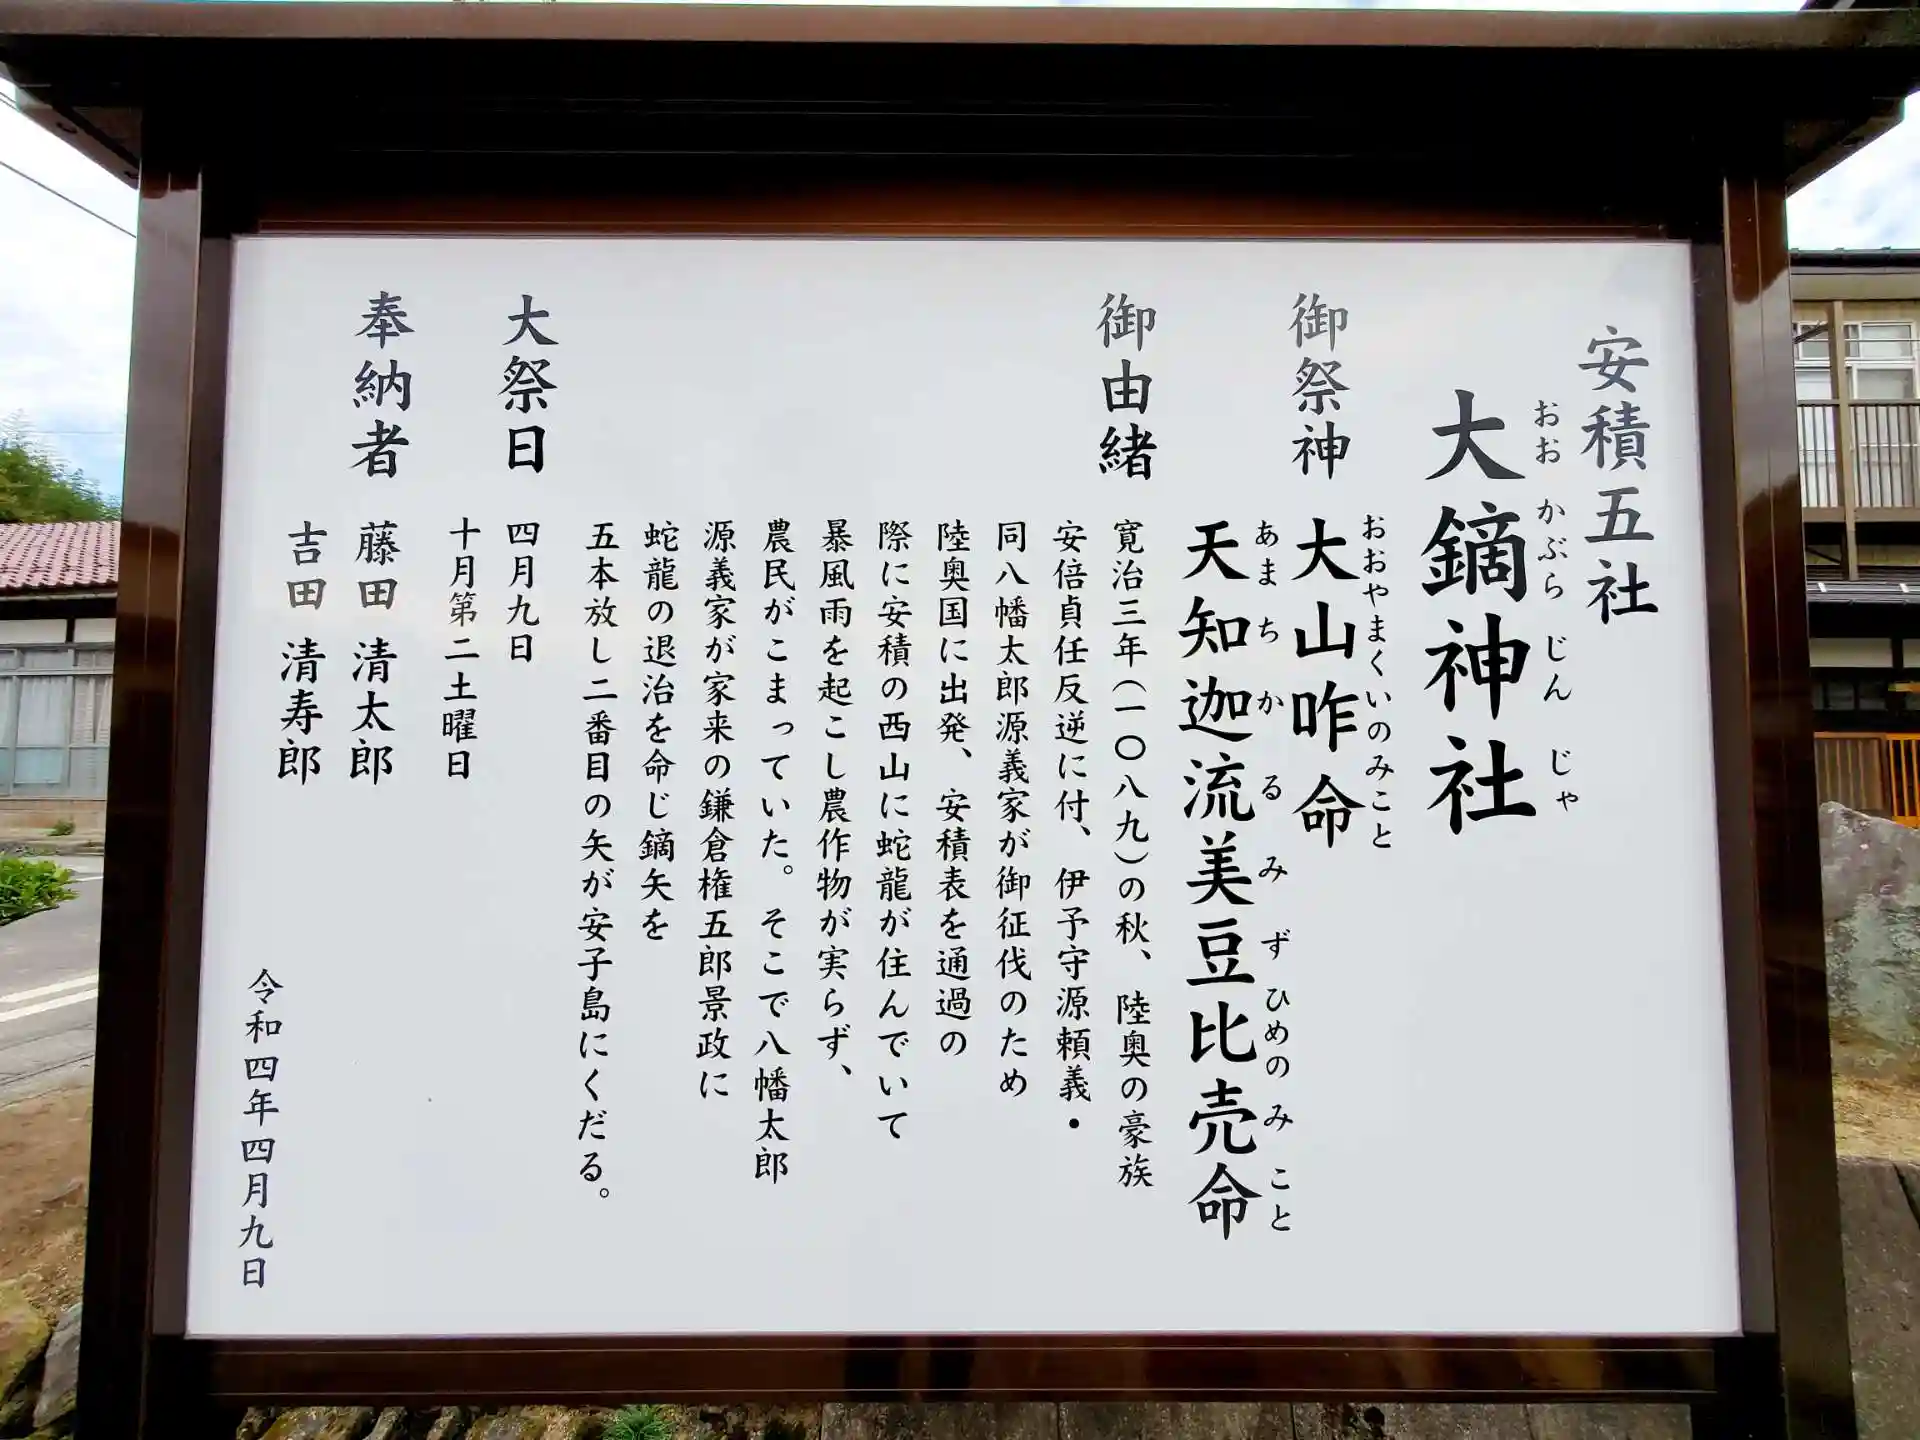 安積五社
大鏑神社
おお かぶら じん じゃ
御祭神 大山咋命
おおやまくいのみこと
天知迦流美豆比売命
あまちかるみずひめのみこと
御由緒 寛治三年(一〇八九)の秋、陸奥の豪族
安倍貞任反逆に付、伊予守源頼義・
同八幡太郎源義家が御征伐のため
陸奥国に出発、安積表を通過の
際に安積の西山に蛇龍が住んでいて
暴風雨を起こし農作物が実らず、
農民がこまっていた。そこで八幡太郎
源義家が家来の鎌倉権五郎景政に
蛇龍の退治を命じ鏑矢を
五本放し二番目の矢が安子島にくだる。
大祭日 四月九日
十月第二土曜日
奉納者 藤田 清太郎
吉田 清寿郎
令和四年四月九日